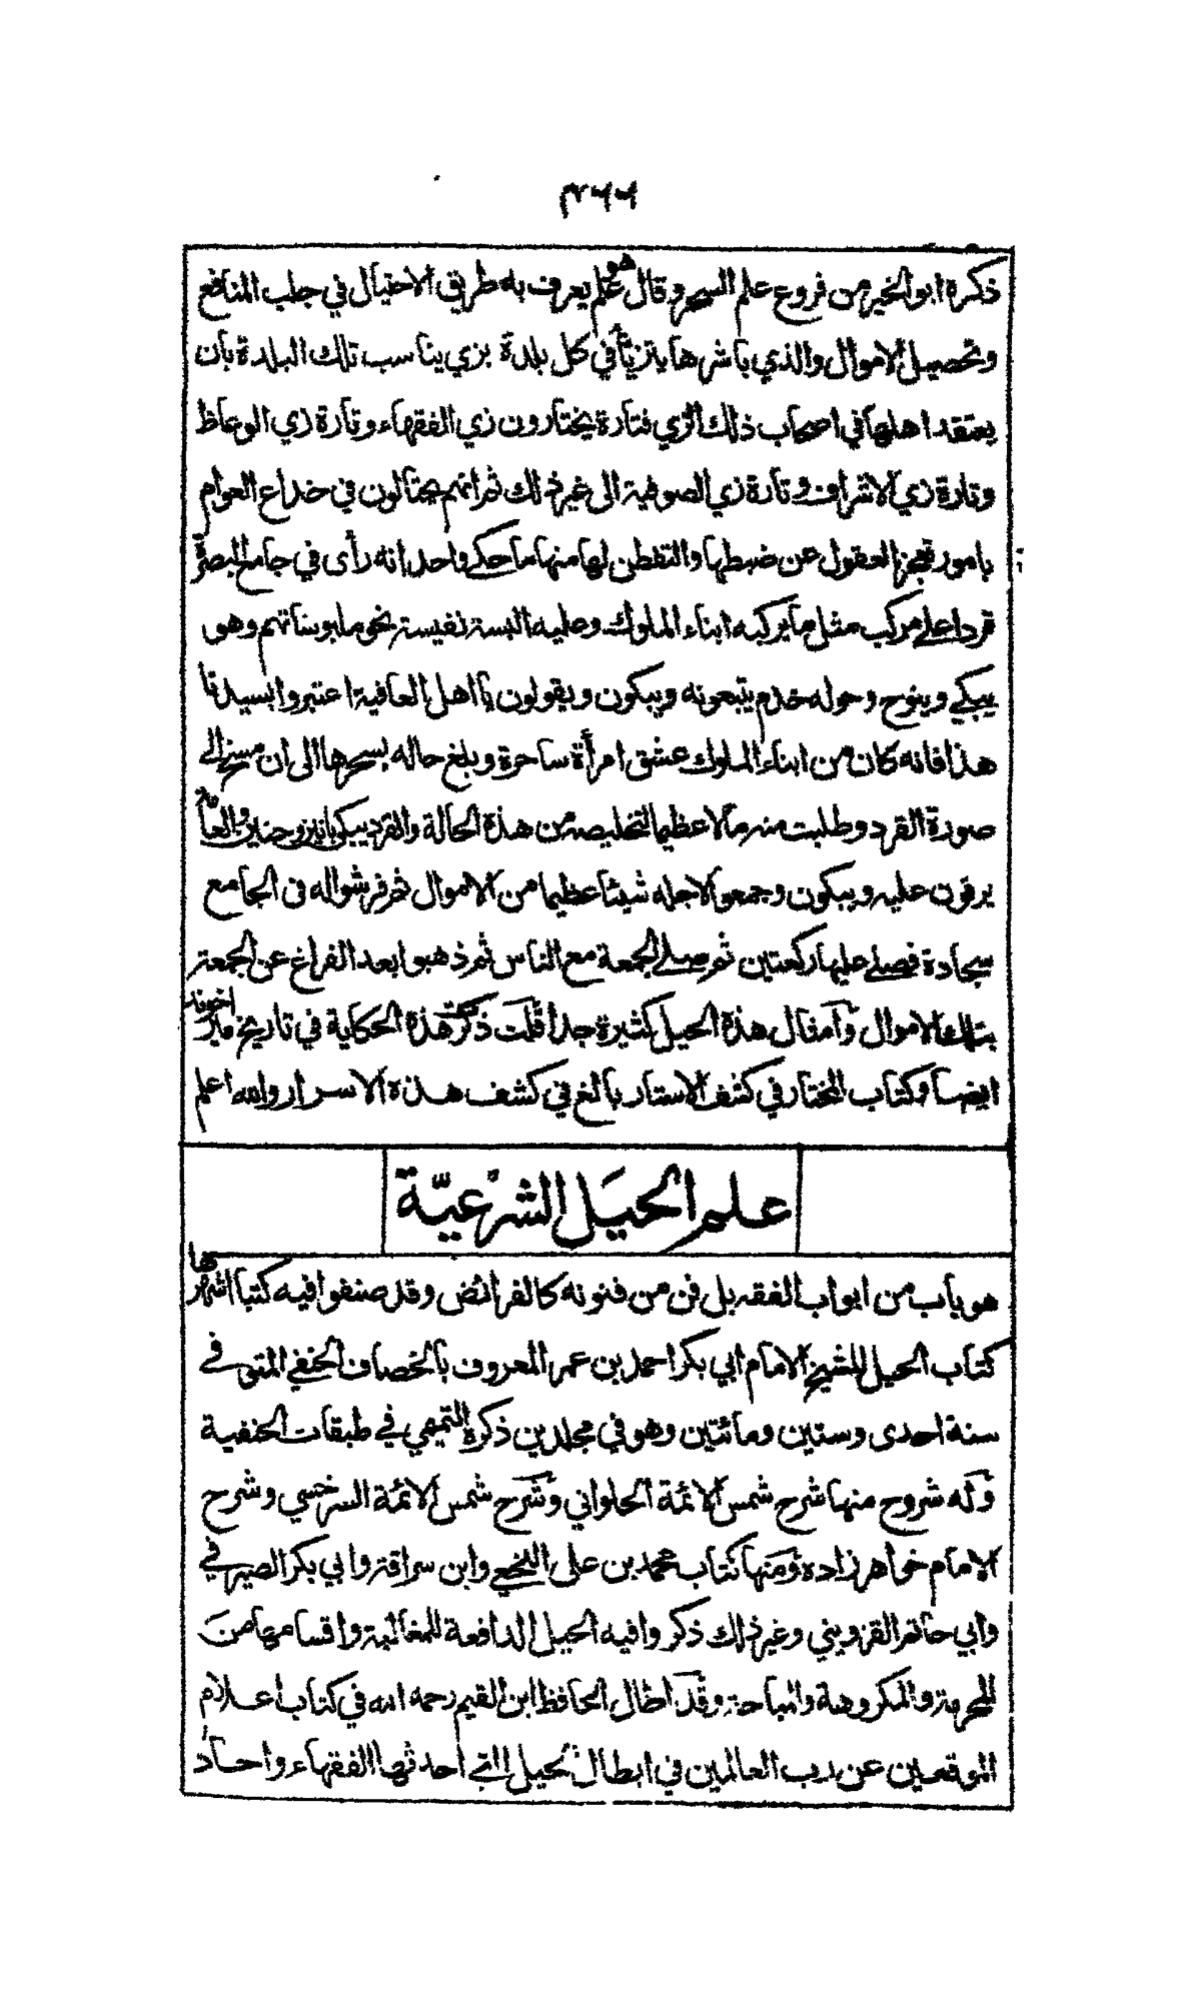 ٣٦٦
ذكره ابو الخير من فروع علم السحر وقال هو علم يعرف به طريق الاحتيال في جلب المنافع
وتحصيل الاموال والذي باشرها يتزيأ في كل بلدة بزي يناسب تلك البلدة بان
يعتقد اهلها في اصحاب ذلك الزي فتارة يختارون زي الفقهاء وتارة زي الوعاظ
وتارة زي الاشراف وتارة زي الصوفية الى غير ذلك ثم انهم يحتالون في خداع العوام
بامور تعجز العقول عن ضبطها والتفطن لها منها ما حكى واحد انه رأى في جامع البصرة
قردا على مركب مثل ما يركبه ابناء الملوك وعليه البسة نفيسة نحو ملبوساتهم وهو
يبكي وينوح وحوله خدم يتبعونه ويبكون ويقولون يا اهل العافية اعتبروا بسيدنا
هذا فانه كان من ابناء الملوك عشق امرأة ساحرة وبلغ حاله بسحرها الى ان مسخ الى
صورة القرد وطلبت منه مالا عظيما لتخليصه من هذه الحالة والقرد يبكي بانين وحنين والعامة
يرقون عليه ويبكون وجمعوا لاجله شيئا عظيما من الاموال ثم فرشوا له في الجامع
سجادة فصلى عليها ركعتين ثم صلى الجمعة مع الناس ثم ذهبوا بعد الفراغ عن الجمعة
بتلك الاموال وامثال هذه الحيل كثيرة جدا قلت ذكرت هذه الحكاية في تاريخ مير اخوند
ايضا وكتاب المختار في كشف الاستار بالغ في كشف هذه الاسرار والله اعلم
علم الحيل الشرعيّة
هو باب من ابواب الفقه بل فن من فنونه كالفرائض وقد صنفوا فيه كتبا اشهرها
كتاب الحيل للشيخ الامام ابي بكر احمد بن عمر المعروف بالخصاف الحنفي المتوفى
سنة احدى وستين ومائتين وهو في مجلدين ذكره التميمي في طبقات الحنفية
وله شروح منها شرح شمس الائمة الحلواني وشرح شمس الائمة السرخسي وشرح
الامام خواهر زاده ومنها كتاب محمد بن علي النخعي وابن سراقة وابي بكر الصيرفي
وابي حاتم القزويني وغير ذلك ذكروا فيه الحيل الدافعة للمغالبة واقسامها من
المحرمة والمكروهة والمباحة وقد اطال الحافظ ابن القيم رحمه الله في كتاب اعلام
الموقعين عن رب العالمين في ابطال الحيل التي احدثها الفقهاء واجاد